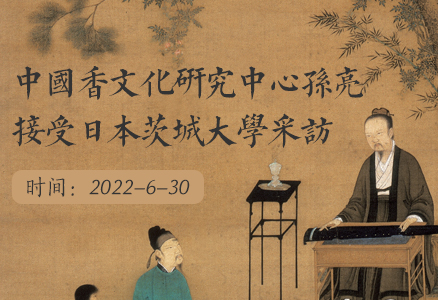 中國香文化研究中心孫亮
接受日本茨城大學采訪
时间：2022-6-30